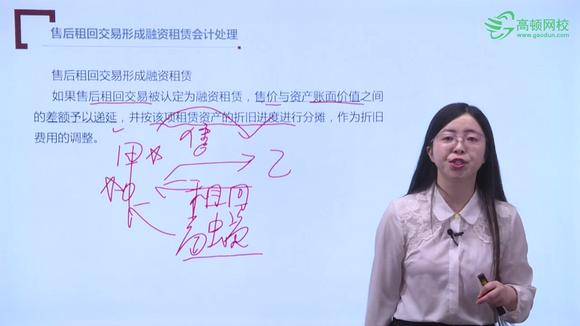 售后租回交易形成融资租赁会计处理
高顿网校
www.gaodun.com
售后租回交易形成融资租赁
如果售后租回交易被认定为融资租赁，售价与资产账面价值之间
的差额予以递延，并按该项租赁资产的折旧进度进行分摊，作为折旧
费用的调整。
甲
乙
租回
融资